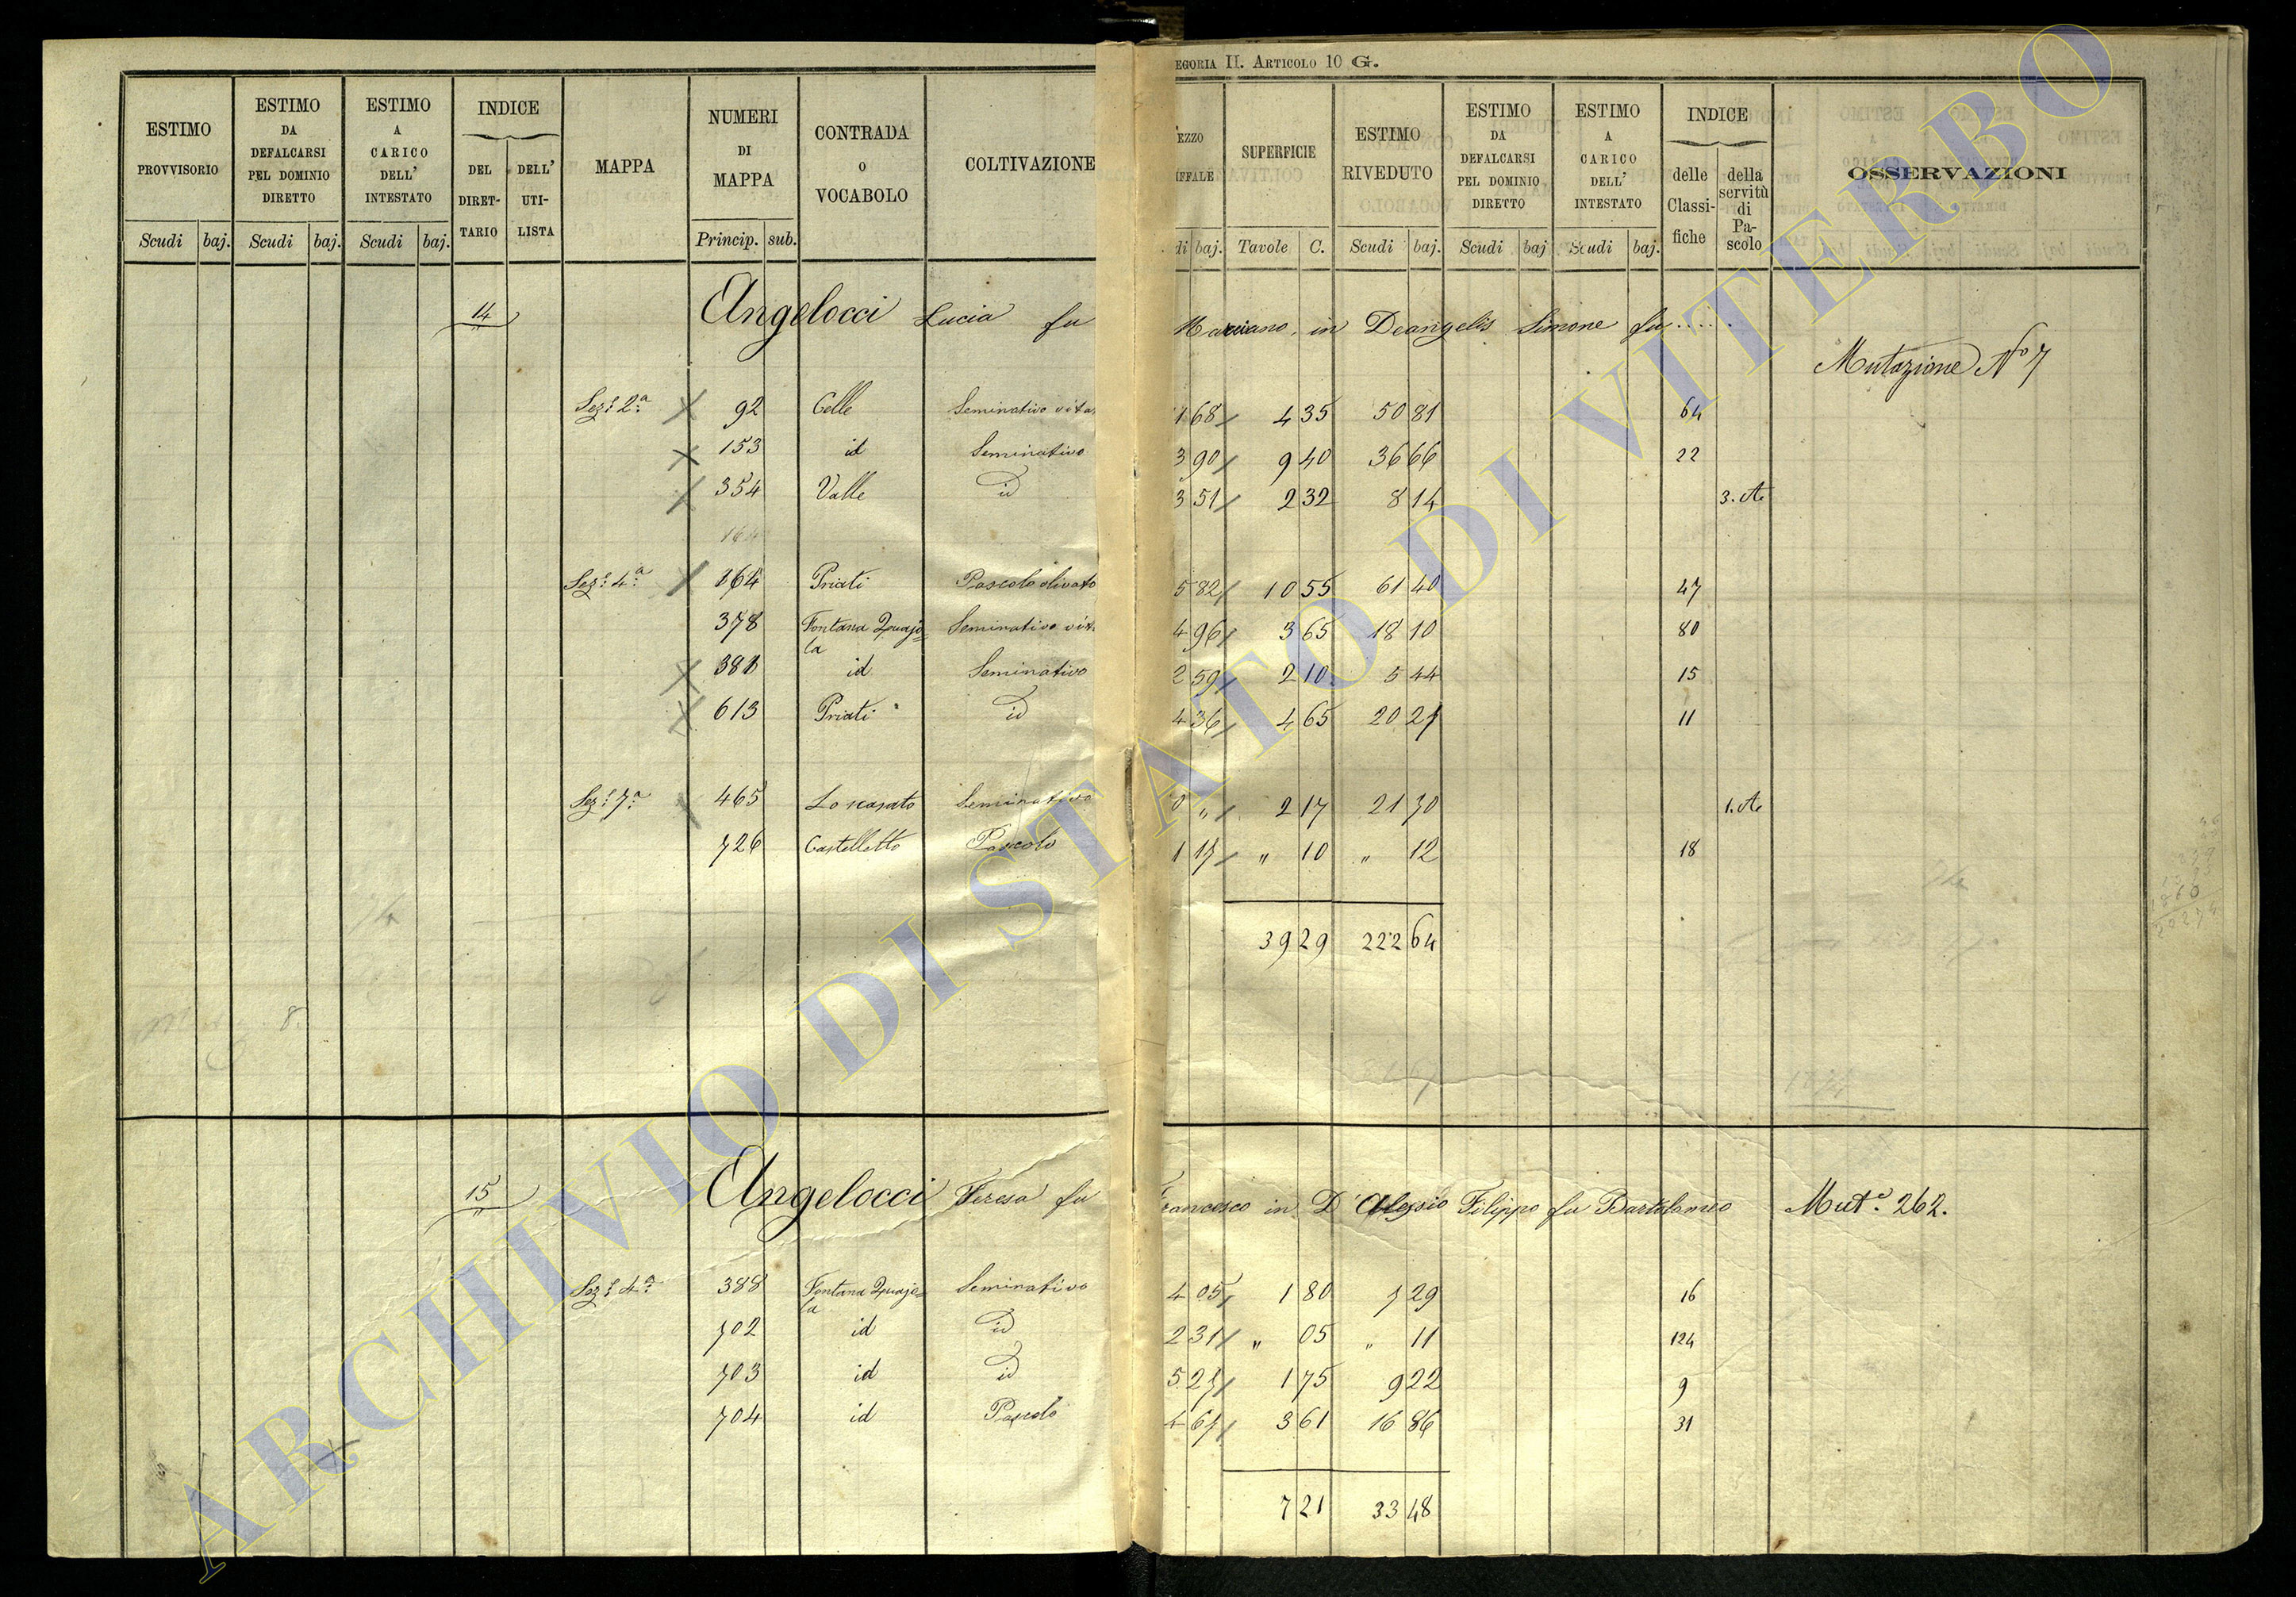 EGORIA II. ARTICOLO 10 G.
ESTIMO PROVVISORIO
Scudi baj.
ESTIMO DA DEFALCARSI PEL DOMINIO DIRETTO
Scudi baj.
ESTIMO A CARICO DELL' INTESTATO
Scudi baj.
INDICE
DEL DIRET-TARIO
DELL' UTI-LISTA
MAPPA
NUMERI DI MAPPA
Princip. sub.
CONTRADA O VOCABOLO
COLTIVAZIONE
EZZO
IFFALE
di baj.
SUPERFICIE
Tavole C.
ESTIMO RIVEDUTO
Scudi baj.
ESTIMO DA DEFALCARSI PEL DOMINIO DIRETTO
Scudi baj
ESTIMO A CARICO DELL' INTESTATO
Scudi baj.
INDICE
delle Classi-fiche
della servitù di Pa-scolo
OSSERVAZIONI
14 Angelocci Lucia fu Marciano, in Deangelis Simone fu ......
Mutazione No 7
Sez: 2a 92 Celle Seminativo vita 1 68 4 35 50 81 64
153 id Seminativo 3 90 9 40 36 66 22
354 Valle id 3 51 2 32 8 14 3. A
Sez: 4a 164 Priati Pascolo olivato 5 82 10 55 61 40 47
378 Fontana Quajo=la Seminativo vit 4 96 3 65 18 10 80
381 id Seminativo 2 59 2 10 5 44 15
613 Priati id 4 36 4 65 20 27 11
Sez: 7a 465 Lo scasato Seminativo 0 " 2 17 21 70 1. A
726 Castelletto Pascolo 1 17 " 10 " 12 18
39 29 222 64
15 Angelocci Teresa fu Francesco in D'Alessio Filippo fu Bartolomeo Mute. 262.
Sez: 4a 388 Fontana Quajo=la Seminativo 4 05 1 80 7 29 16
702 id id 2 31 " 05 " 11 124
703 id id 5 27 1 75 9 22 9
704 id Pascolo 4 67 3 61 16 86 31
7 21 33 48
ARCHIVIO DI STATO DI VITERBO